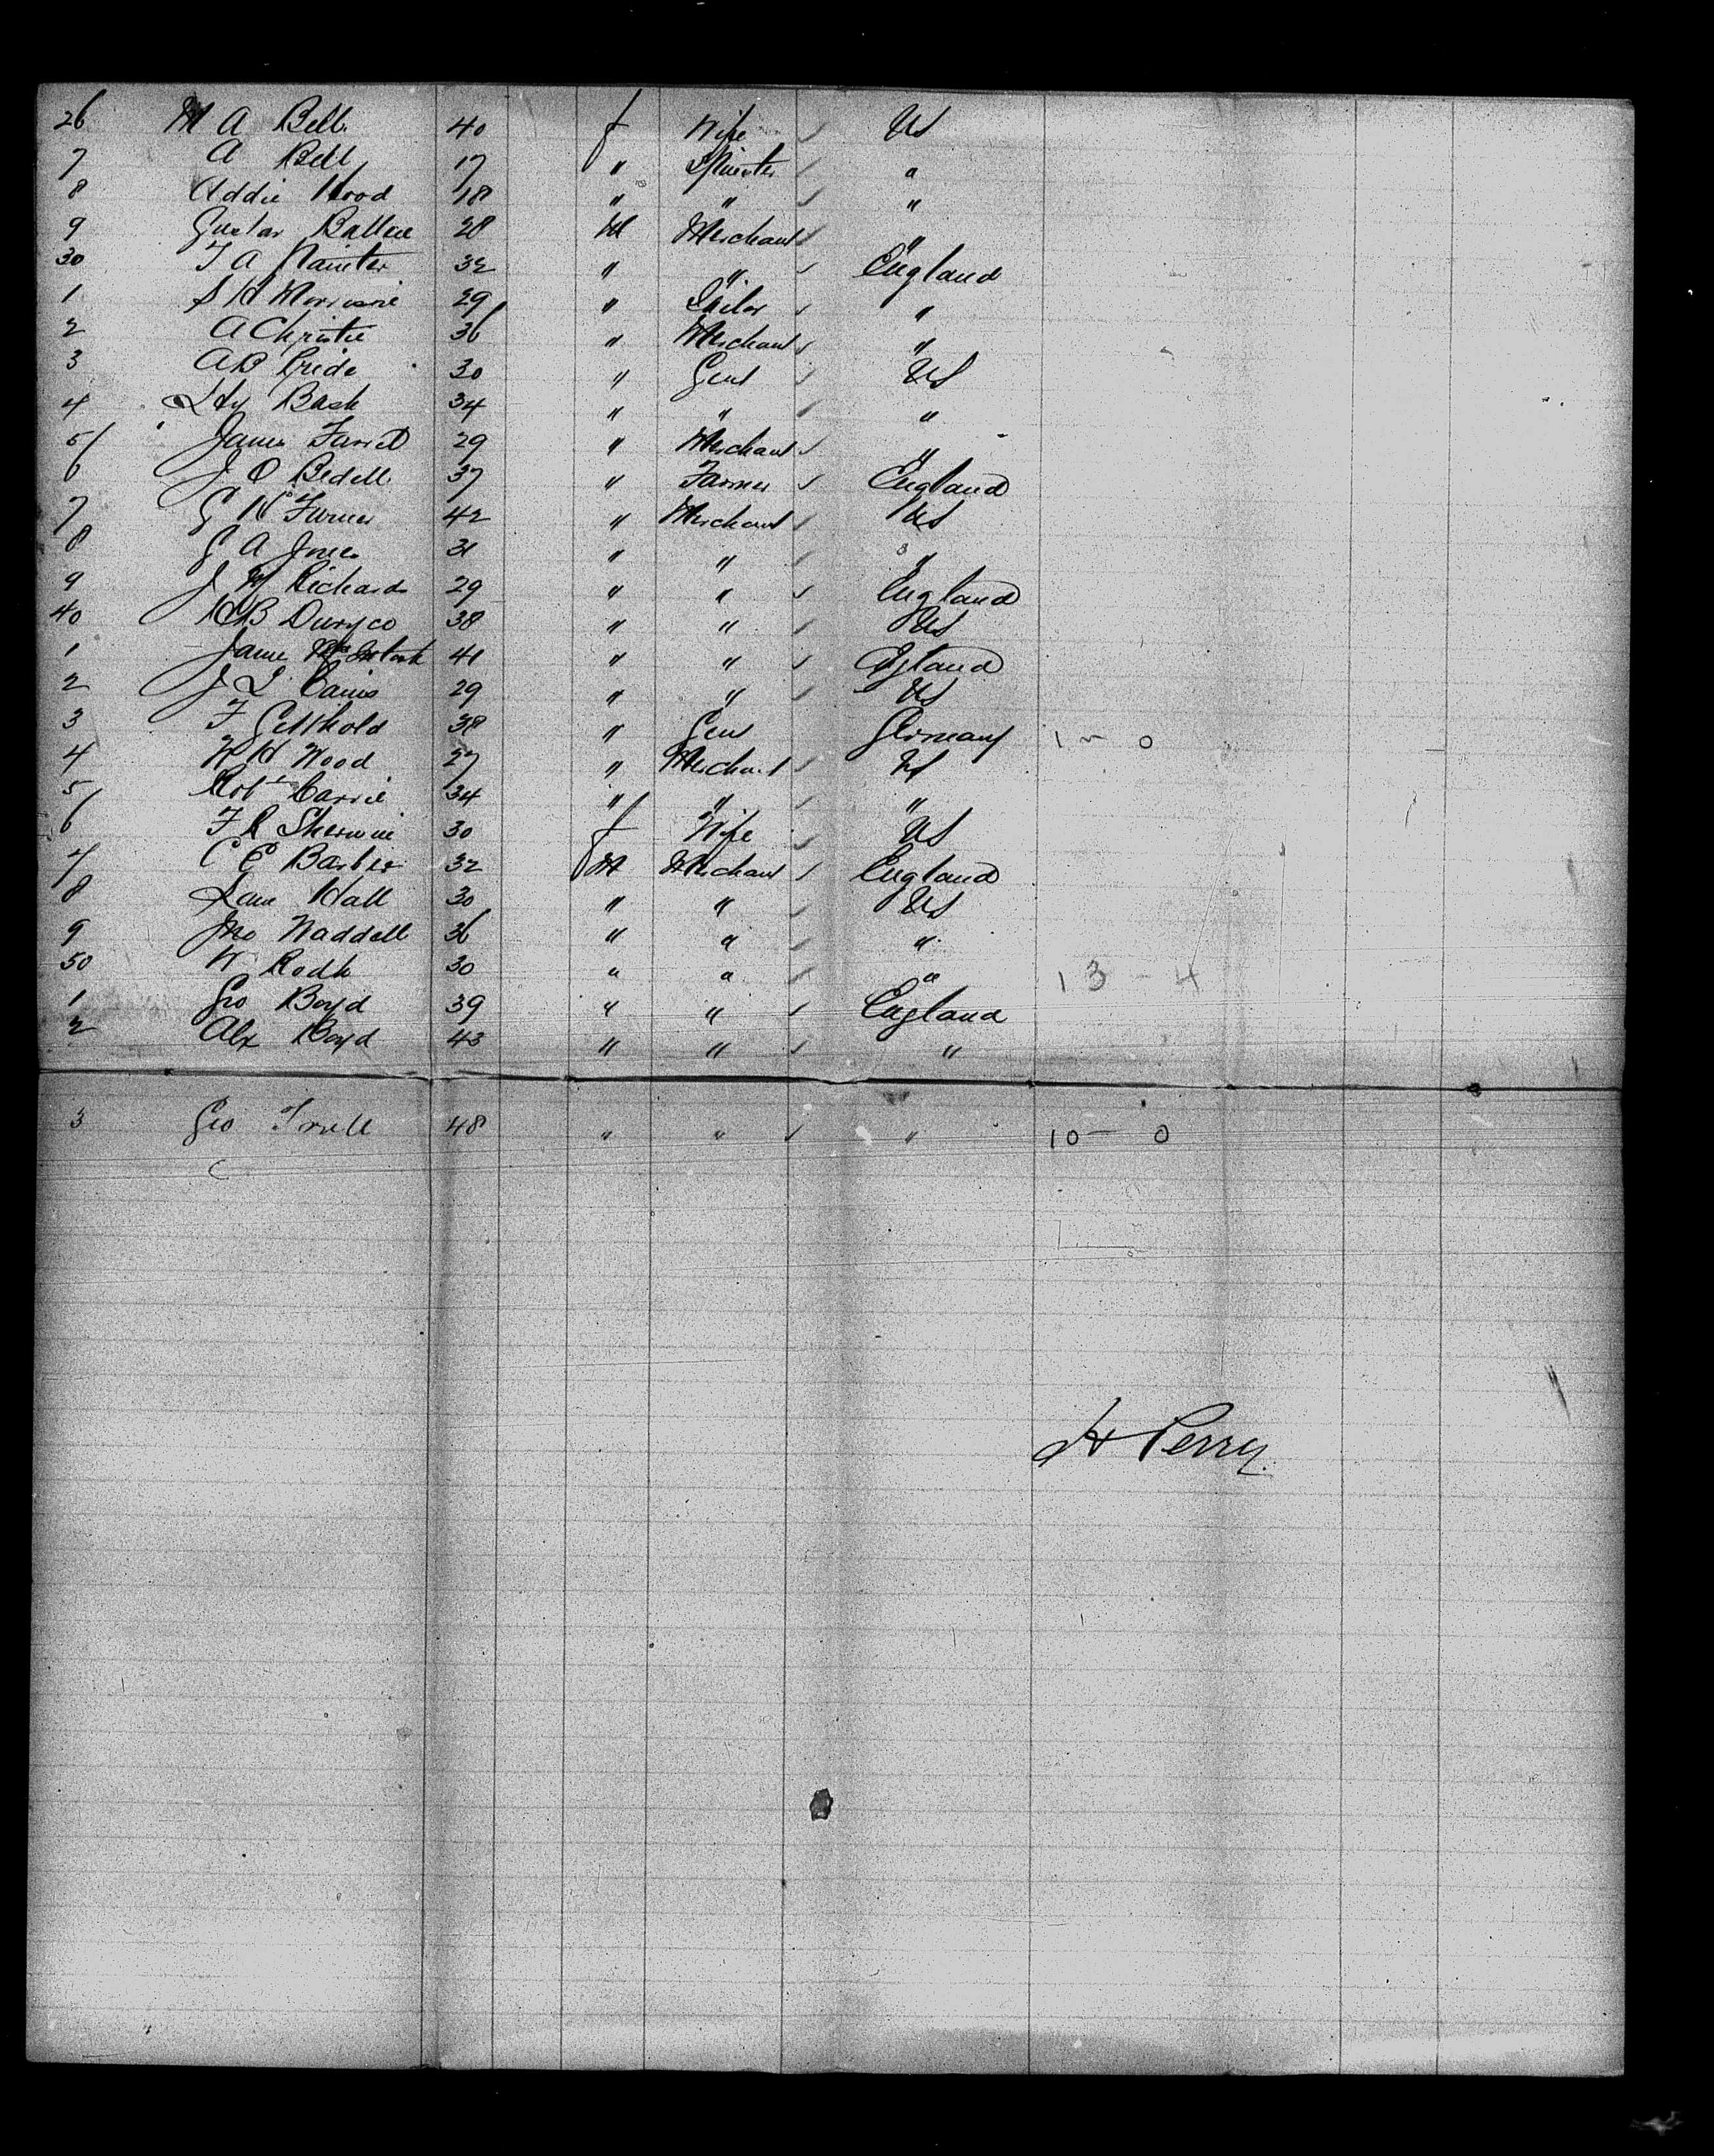 26 M A Bell 40 f Wife ✓ US
7 A Bell 17 " Spinster ✓ "
8 Addie Hood 18 " " ✓ "
9 Gustav 28 M Merchant ✓ "
30 T A Painter 32 " " ✓ England
1 S H 29 " Sailor ✓ "
2 A Christie 36 " Merchant ✓ "
3 A B Pride 30 " Gent ✓ US
4 Hy Bash 34 " " ✓ "
5 James 29 " Merchant ✓ "
6 J O Bedell 37 " Farmer ✓ England
7 G H Turner 42 " Merchant ✓ US
8 G A Jones 31 " " ✓ "
9 J W Richards 29 " " ✓ England
40 B Duryea 38 " " ✓ US
1 James McIntosh 41 " " ✓ England
2 J L 29 " " ✓ US
3 F 38 " Gent Germany 1 - 0
4 W H Wood 27 " Merchant ✓ US
5 Robt 34 " " ✓ "
6 F R Sherwin 30 f Wife ✓ US
7 C E Barber 32 M Merchant ✓ England
8 Hall 30 " " ✓ US
9 Jno Waddell 36 " " ✓ "
50 W 30 " " ✓ " 13 - 4
1 Geo Boyd 39 " " ✓ England
2 Alx Boyd 43 " " ✓ "
3 Geo 48 " " ✓ " 10 - 0
H Perry.